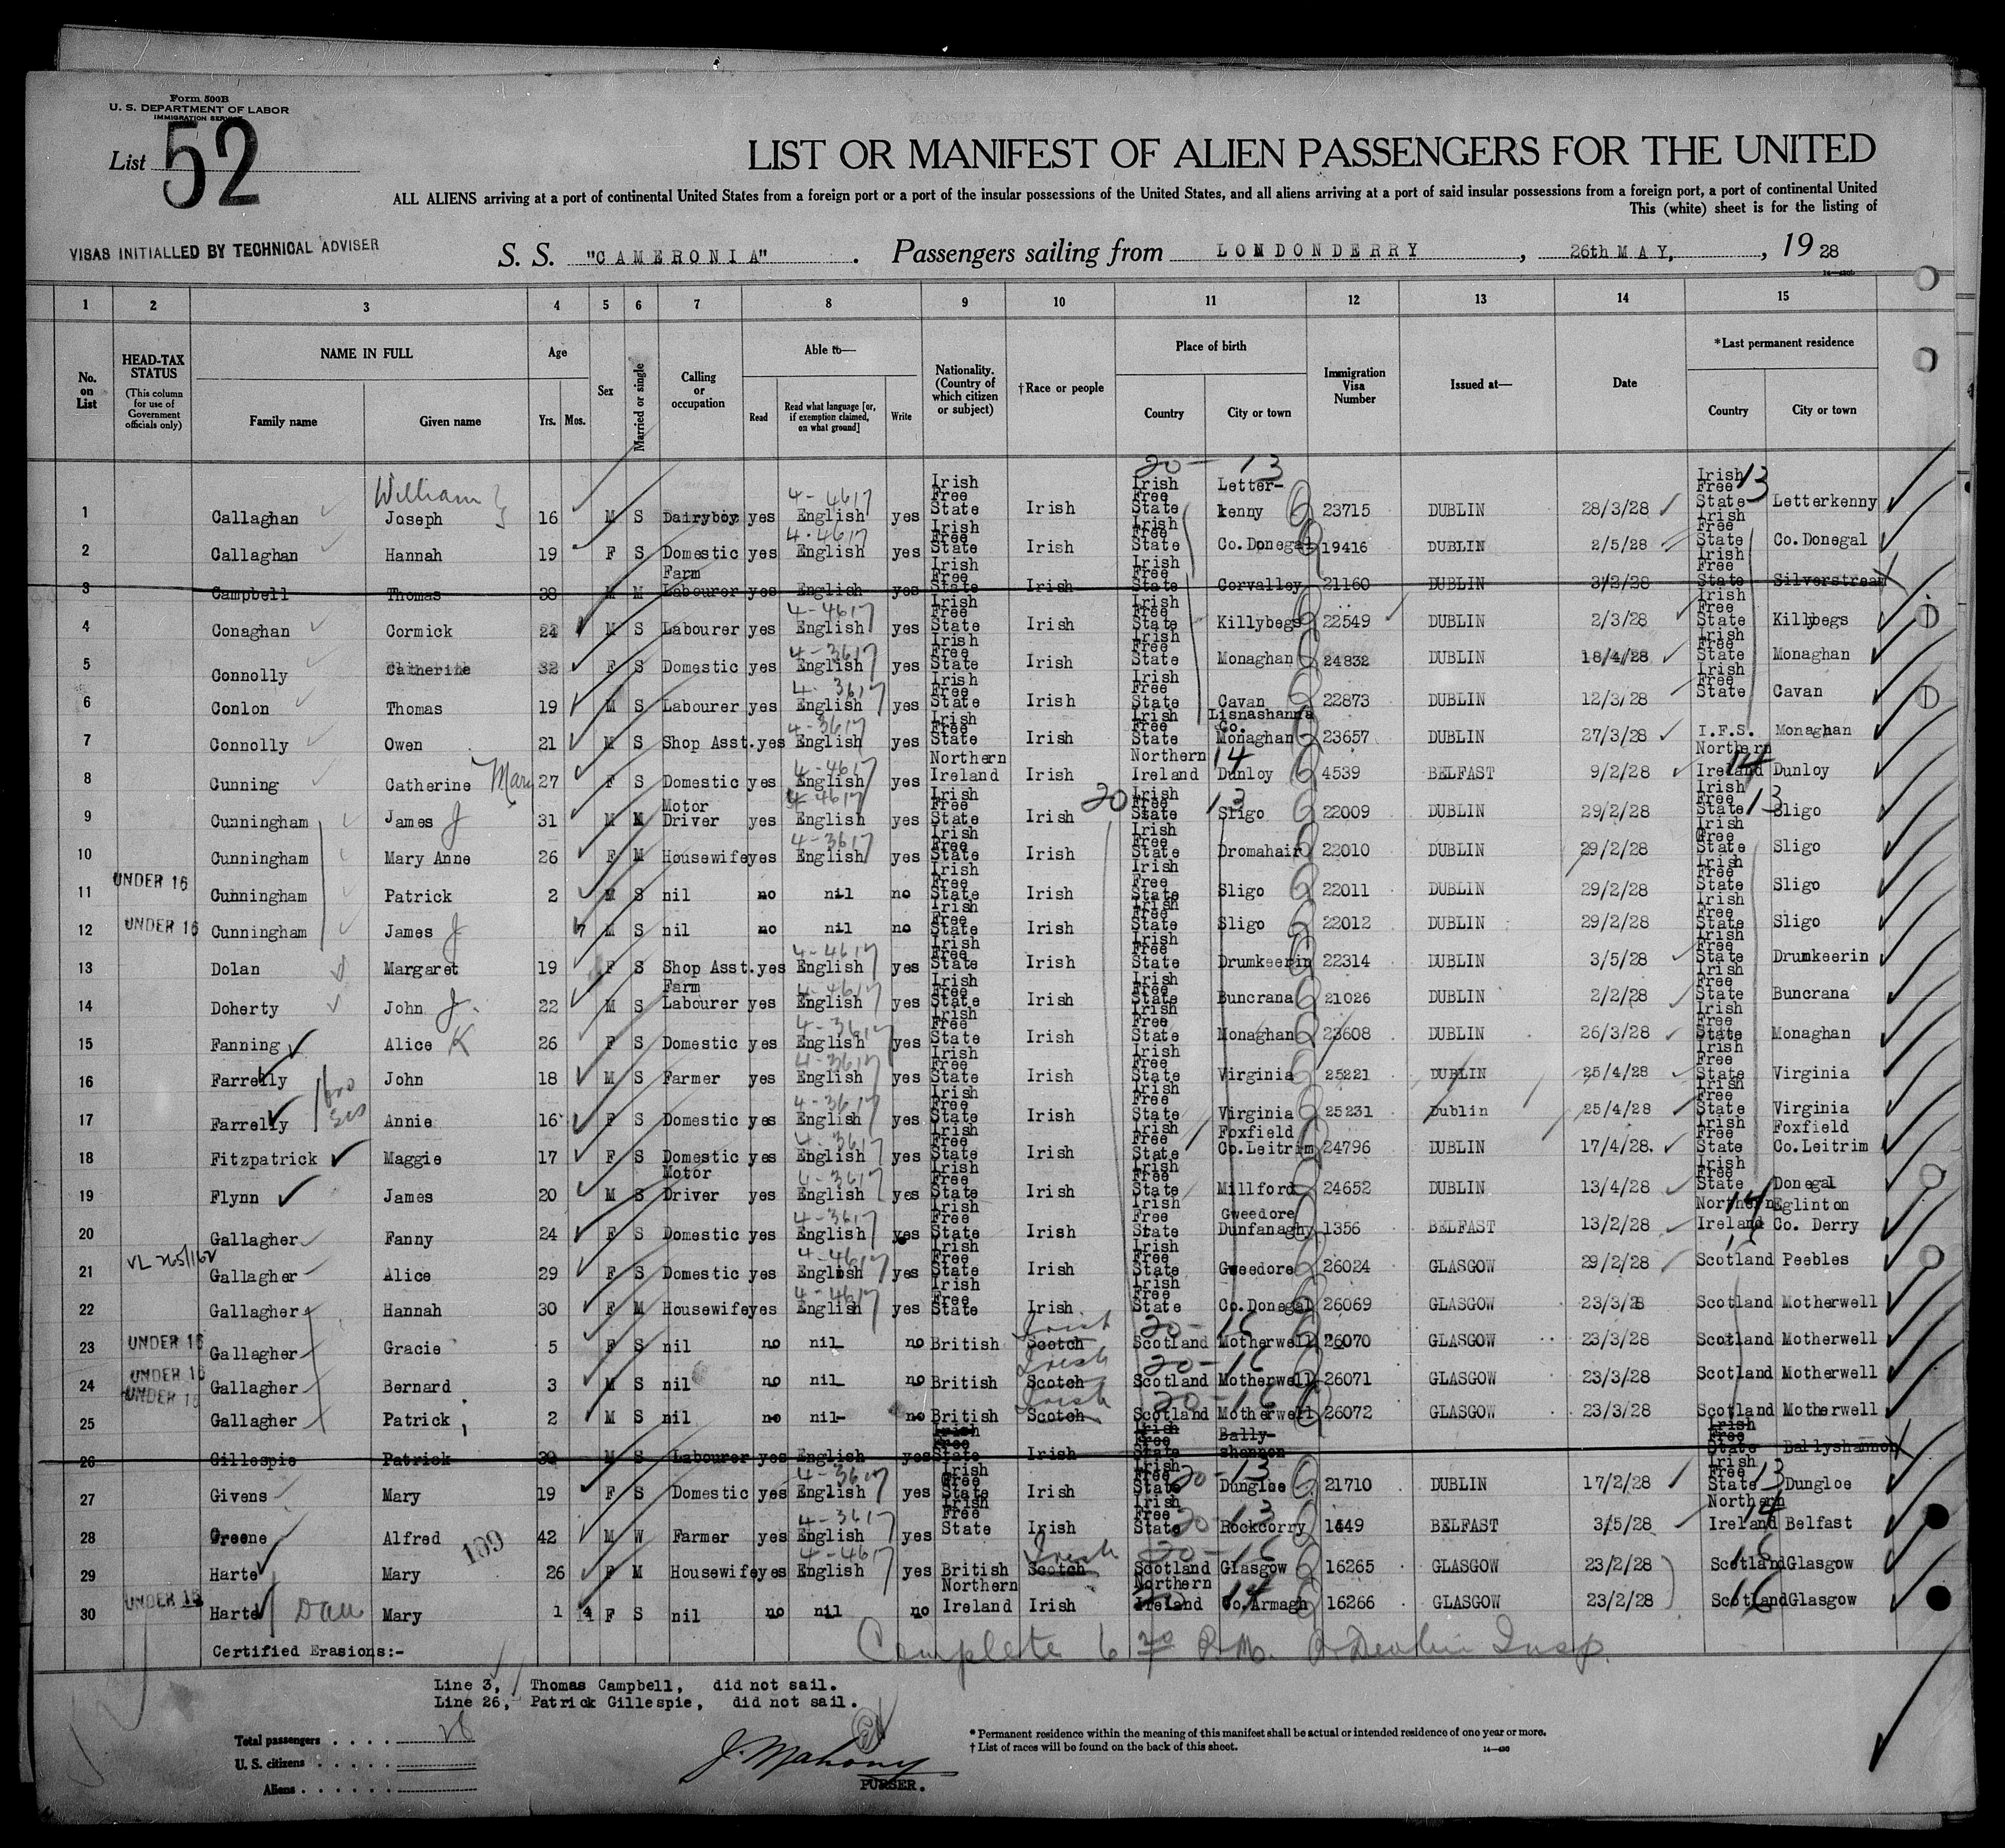 Form 500B
U. S. DEPARTMENT OF LABOR
IMMIGRATION SERVICE
List 52
LIST OR MANIFEST OF ALIEN PASSENGERS FOR THE UNITED
ALL ALIENS arriving at a port of continental United States from a foreign port or a port of the insular possessions of the United States, and all aliens arriving at a port of said insular possessions from a foreign port, a port of continental United
This (white) sheet is for the listing of
VISAS INITIALLED BY TECHNICAL ADVISER
S. S. "CAMERONIA" . Passengers sailing from LONDONDERRY , 26th MAY, , 19 28
1 2 3 4 5 6 7 8 9 10 11 12 13 14 15
No. on List
HEAD-TAX STATUS (This column for use of Government officials only)
NAME IN FULL Family name Given name
Age Yrs. Mos.
Sex
Married or single
Calling or occupation
Able to— Read Read what language [or, if exemption claimed, on what ground] Write
Nationality. (Country of which citizen or subject)
†Race or people
Place of birth Country City or town
Immigration Visa Number
Issued at—
Date
*Last permanent residence Country City or town
20- 13 13
1 Callaghan William Joseph 16 M S Dairyboy yes 4-4617 English yes Irish Free State Irish Irish Free State Letter-kenny 23715 DUBLIN 28/3/28 Irish Free State Letterkenny
2 Callaghan Hannah 19 F S Domestic yes 4-4617 English yes Irish Free State Irish Irish Free State Co.Donegal 19416 DUBLIN 2/5/28 Irish Free State Co.Donegal
3 Campbell Thomas 38 M M Farm Labourer yes English yes Irish Free State Irish Irish Free State Corvalley 21160 DUBLIN 3/2/28 Irish Free State Silverstream
4 Conaghan Cormick 24 M S Labourer yes 4-4617 English yes Irish Free State Irish Irish Free State Killybegs 22549 DUBLIN 2/3/28 Irish Free State Killybegs
5 Connolly Catherine 32 F S Domestic yes 4-3617 English yes Irish Free State Irish Irish Free State Monaghan 24832 DUBLIN 18/4/28 Irish Free State Monaghan
6 Conlon Thomas 19 M S Labourer yes 4-3617 English yes Irish Free State Irish Irish Free State Cavan 22873 DUBLIN 12/3/28 Irish Free State Cavan
7 Connolly Owen 21 M S Shop Asst. yes 4-3617 English yes Irish Free State Irish Irish Free State Lisnashanna Co. Monaghan 23657 DUBLIN 27/3/28 I.F.S. Monaghan
8 Cunning Catherine Mary 27 F S Domestic yes 4-4617 English yes Northern Ireland Irish Northern Ireland 14 Dunloy 4539 BELFAST 9/2/28 Northern Ireland 14 Dunloy
9 Cunningham James J 31 M M Motor Driver yes 4-4617 English yes Irish Free State Irish 20 Irish Free State 13 Sligo 22009 DUBLIN 29/2/28 Irish Free State 13 Sligo
10 Cunningham Mary Anne 26 F M Housewife yes 4-3617 English yes Irish Free State Irish Irish Free State Dromahair 22010 DUBLIN 29/2/28 Irish Free State Sligo
11 UNDER 16 Cunningham Patrick 2 M S nil no nil no Irish Free State Irish Irish Free State Sligo 22011 DUBLIN 29/2/28 Irish Free State Sligo
12 UNDER 16 Cunningham James J 7 M S nil no nil no Irish Free State Irish Irish Free State Sligo 22012 DUBLIN 29/2/28 Irish Free State Sligo
13 Dolan Margaret 19 F S Shop Asst. yes 4-4617 English yes Irish Free State Irish Irish Free State Drumkeerin 22314 DUBLIN 3/5/28 Irish Free State Drumkeerin
14 Doherty John J. 22 M S Farm Labourer yes 4-4617 English yes Irish Free State Irish Irish Free State Buncrana 21026 DUBLIN 2/2/28 Irish Free State Buncrana
15 Fanning Alice K 26 F S Domestic yes 4-3617 English yes Irish Free State Irish Irish Free State Monaghan 23608 DUBLIN 26/3/28 Irish Free State Monaghan
16 Farrelly bro John 18 M S Farmer yes 4-3617 English yes Irish Free State Irish Irish Free State Virginia 25221 DUBLIN 25/4/28 Irish Free State Virginia
17 Farrelly sis Annie 16 F S Domestic yes 4-3617 English yes Irish Free State Irish Irish Free State Virginia 25231 Dublin 25/4/28 Irish Free State Virginia
18 Fitzpatrick Maggie 17 F S Domestic yes 4-3617 English yes Irish Free State Irish Irish Free State Foxfield Co.Leitrim 24796 DUBLIN 17/4/28. Irish Free State Foxfield Co.Leitrim
19 Flynn James 20 M S Motor Driver yes 4-3617 English yes Irish Free State Irish Irish Free State Millford 24652 DUBLIN 13/4/28 Irish Free State Donegal
20 Gallagher Fanny 24 F S Domestic yes 4-3617 English yes Irish Free State Irish Irish Free State Gweedore Dunfanaghy 1356 BELFAST 13/2/28 Northern Ireland 14 Eglinton Co. Derry
21 Gallagher Alice 29 F S Domestic yes 4-4617 English yes Irish Free State Irish Irish Free State Gweedore 26024 GLASGOW 29/2/28 Scotland 16 Peebles
22 Gallagher Hannah 30 F M Housewife yes 4-4617 English yes Irish Free State Irish Irish Free State Co.Donegal 26069 GLASGOW 23/3/28 Scotland Motherwell
23 UNDER 16 Gallagher Gracie 5 F S nil no nil no British Irish Scotch 20-16 Scotland Motherwell 26070 GLASGOW 23/3/28 Scotland Motherwell
24 UNDER 16 Gallagher Bernard 3 M S nil no nil no British Irish Scotch 20-16 Scotland Motherwell 26071 GLASGOW 23/3/28 Scotland Motherwell
25 UNDER 16 Gallagher Patrick 2 M S nil no nil no British Irish Scotch 20-16 Scotland Motherwell 26072 GLASGOW 23/3/28 Scotland Motherwell
26 Gillespie Patrick 30 M S Labourer yes English yes Irish Free State Irish Irish Free State Bally-shannon Irish Free State Ballyshannon
27 Givens Mary 19 F S Domestic yes 4-3617 English yes Irish Free State Irish Irish Free State 20-13 Dungloe 21710 DUBLIN 17/2/28 Irish Free State 13 Dungloe
28 Greene Alfred 109 42 M W Farmer yes 4-3617 English yes Irish Free State Irish Irish Free State 20-13 Rockcorry 1449 BELFAST 3/5/28 Northern Ireland 14 Belfast
29 Harte Mary 26 F M Housewife yes 4-4617 English yes British Irish Scotch 20-16 Scotland Glasgow 16265 GLASGOW 23/2/28 Scotland 16 Glasgow
30 UNDER 16 Harte Dau Mary 1 4 F S nil no nil no Northern Ireland Irish Northern Ireland 14 Co.Armagh 16266 GLASGOW 23/2/28 Scotland 16 Glasgow
Certified Erasions:-
Complete 6 P.M. Insp.
Line 3, Thomas Campbell, did not sail.
Line 26, Patrick Gillespie, did not sail.
Total passengers . . . . . 28
U. S. citizens . . . . . .
Aliens . . . . . . .
J. Mahony
PURSER.
* Permanent residence within the meaning of this manifest shall be actual or intended residence of one year or more.
† List of races will be found on the back of this sheet.
14—430